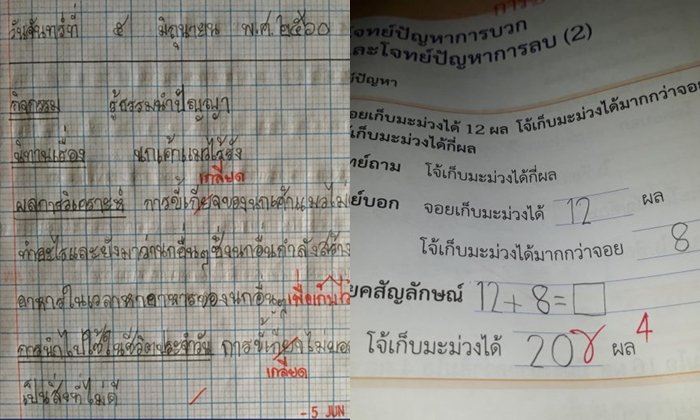 วันจันทร์ที่ ๕ มิถุนายน พ.ศ. ๒๕๖๐
กิจกรรม รู้ธรรมนำปัญญา
นิทานเรื่อง นกเค้าแมวไร้รัง
เกลียด
ผลการวิเคราะห์ การขี้เกียจของนกเค้าแมวไม่
ทำอะไรและยังมาว่านกอื่นๆซึ่งนกอื่นกำลังสร้าง
อาหารในเวลาหาอาหารของนกอื่นๆ เพื่อเก็บไว้
การนำไปใช้ในชีวิตประจำวัน การขี้เกียจไม่
เกลียด
เป็นสิ่งที่ไม่ดี
- 5 JUN
โจทย์ปัญหาการบวก
และโจทย์ปัญหาการลบ (2)
ปัญหา
จอยเก็บมะม่วงได้ 12 ผล โจ้เก็บมะม่วงได้มากกว่าจอย
เก็บมะม่วงได้กี่ผล
ถาม โจ้เก็บมะม่วงได้กี่ผล
บอก จอยเก็บมะม่วงได้ 12 ผล
โจ้เก็บมะม่วงได้มากกว่าจอย 8
สัญลักษณ์ 12 + 8 = □
โจ้เก็บมะม่วงได้ 20 ผล 4